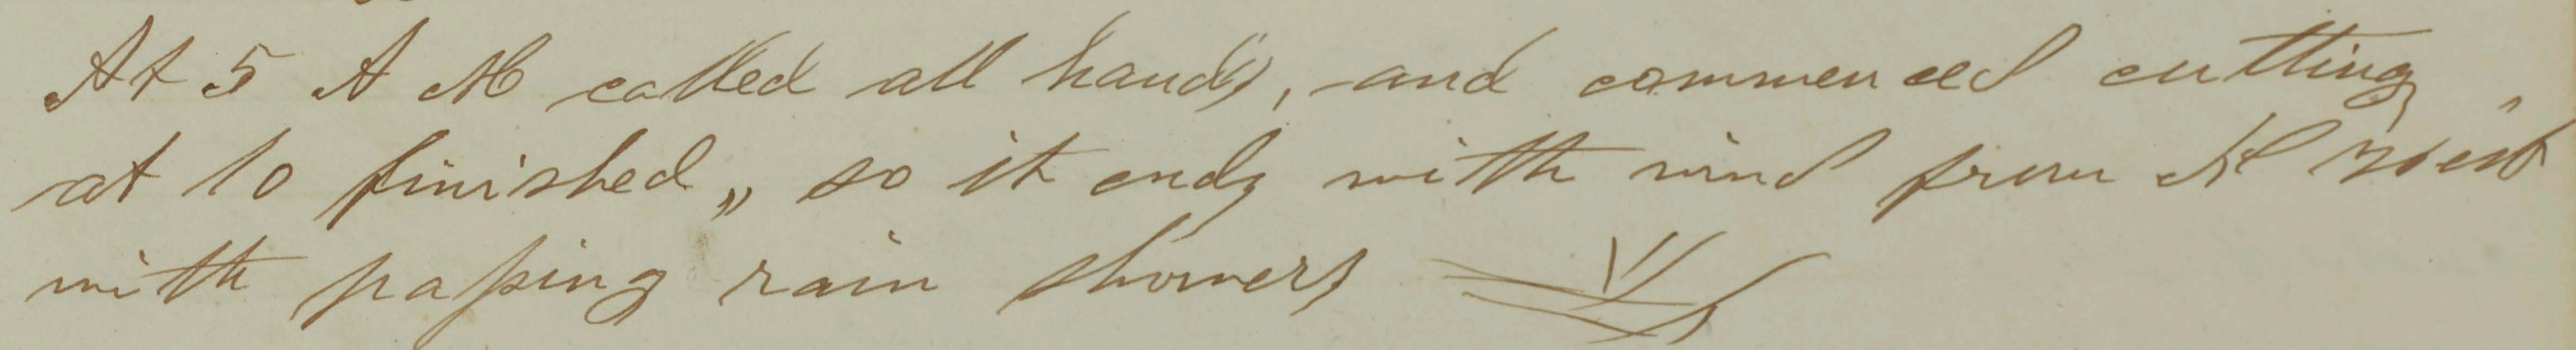 At 5 A M called all hands, and commenced cutting,
at 10 finished,, so it ends with wind from N West
with passing rain showers